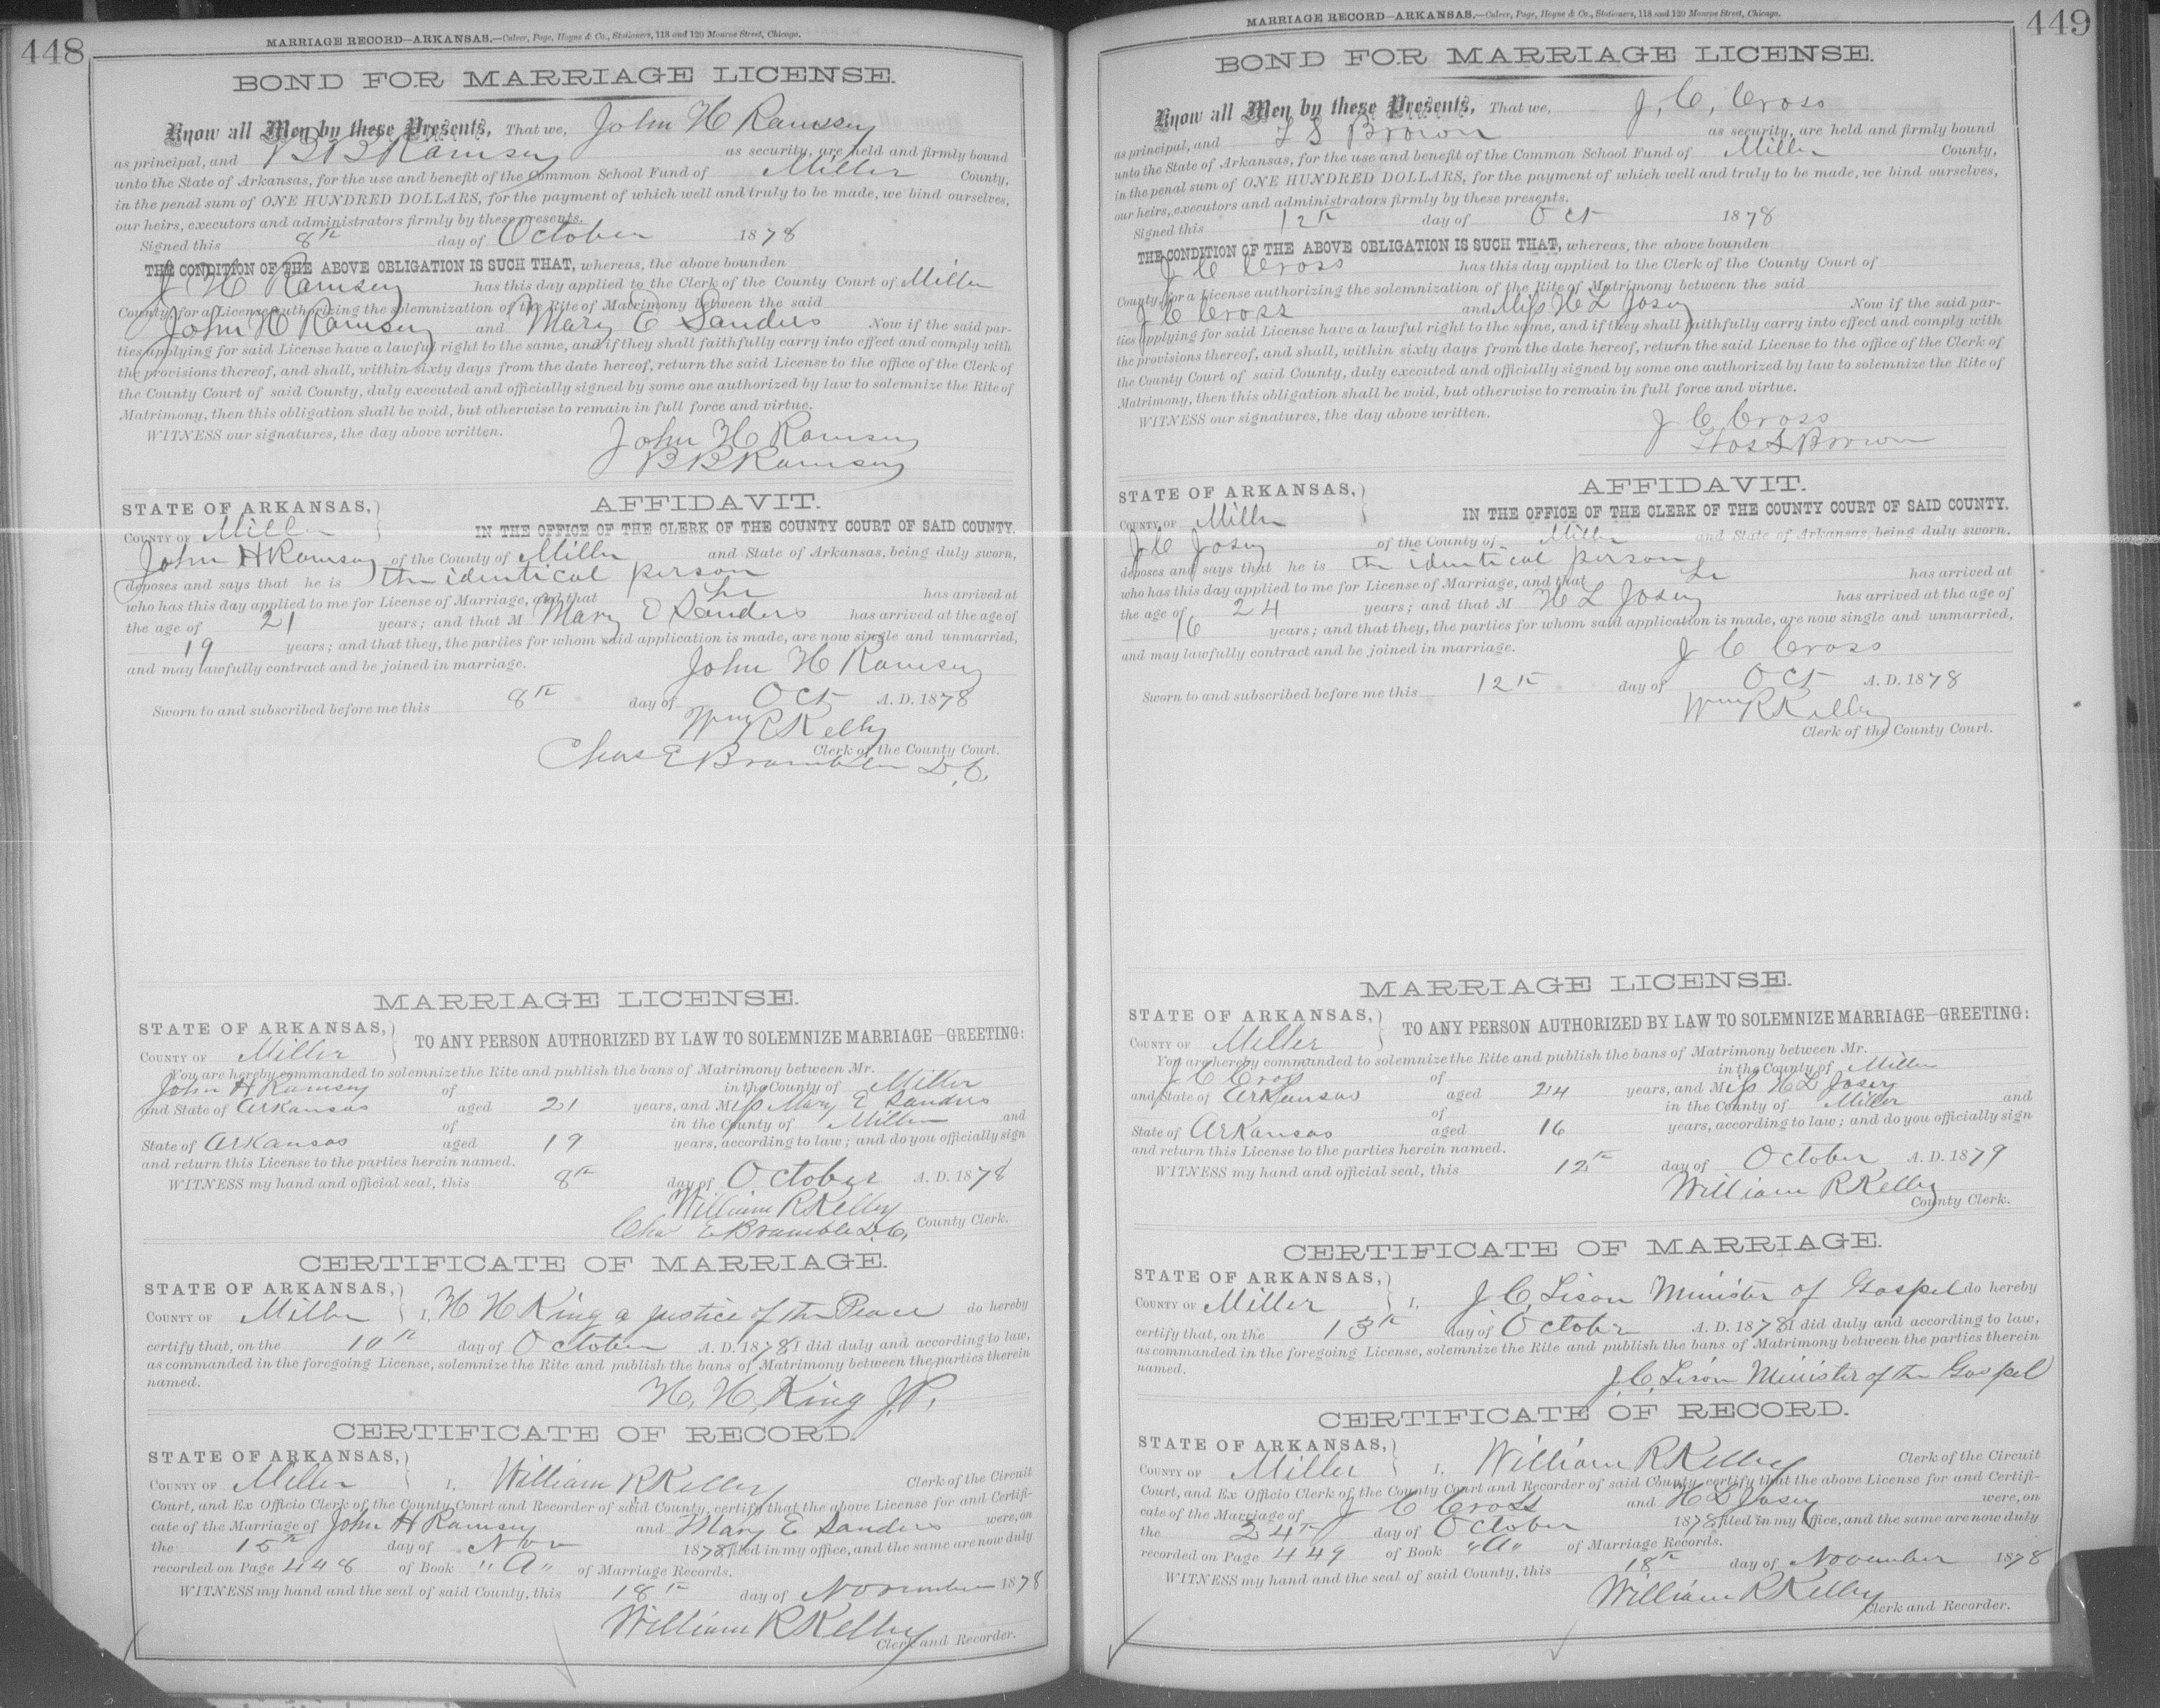 448
MARRIAGE RECORD—ARKANSAS.—Culver, Page, Hoyne & Co., Stationers, 118 and 120 Monroe Street, Chicago.
BOND FOR MARRIAGE LICENSE.
Know all Men by these Presents, That we, John H Ramsey
as principal, and B B Ramsey as security, are held and firmly bound
unto the State of Arkansas, for the use and benefit of the Common School Fund of Miller County,
in the penal sum of ONE HUNDRED DOLLARS, for the payment of which well and truly to be made, we bind ourselves,
our heirs, executors and administrators firmly by these presents.
Signed this 8th day of October 1878
THE CONDITION OF THE ABOVE OBLIGATION IS SUCH THAT, whereas, the above bounden
J H Ramsey has this day applied to the Clerk of the County Court of Miller
County, for a License authorizing the solemnization of the Rite of Matrimony between the said
John H Ramsey and Mary E Sanders Now if the said par-
ties applying for said License have a lawful right to the same, and if they shall faithfully carry into effect and comply with
the provisions thereof, and shall, within sixty days from the date hereof, return the said License to the office of the Clerk of
the County Court of said County, duly executed and officially signed by some one authorized by law to solemnize the Rite of
Matrimony, then this obligation shall be void, but otherwise to remain in full force and virtue.
WITNESS our signatures, the day above written.
John H Ramsey
B B Ramsey
AFFIDAVIT.
STATE OF ARKANSAS,
COUNTY OF Miller
IN THE OFFICE OF THE CLERK OF THE COUNTY COURT OF SAID COUNTY.
John H Ramsey of the County of Miller and State of Arkansas, being duly sworn,
deposes and says that he is the identical person
who has this day applied to me for License of Marriage, and that he has arrived at
the age of 21 years; and that M Mary E Sanders has arrived at the age of
19 years; and that they, the parties for whom said application is made, are now single and unmarried,
and may lawfully contract and be joined in marriage.
John H Ramsey
Sworn to and subscribed before me this 8th day of Oct A. D. 1878
Wm R Kelly
Clerk of the County Court.
Chas E Bramble D.C.
MARRIAGE LICENSE.
STATE OF ARKANSAS,
COUNTY OF Miller
TO ANY PERSON AUTHORIZED BY LAW TO SOLEMNIZE MARRIAGE—GREETING:
You are hereby commanded to solemnize the Rite and publish the bans of Matrimony between Mr.
John H Ramsey of in the County of Miller
and State of Arkansas aged 21 years, and Miss Mary E Sanders
of in the County of Miller and
State of Arkansas aged 19 years, according to law; and do you officially sign
and return this License to the parties herein named.
WITNESS my hand and official seal, this 8th day of October A. D. 1878
William R Kelly
Chas E Bramble D.C. County Clerk.
CERTIFICATE OF MARRIAGE.
STATE OF ARKANSAS,
COUNTY OF Miller I, H H King a Justice of the Peace do hereby
certify that, on the 10th day of October A. D. 1878 I did duly and according to law,
as commanded in the foregoing License, solemnize the Rite and publish the bans of Matrimony between the parties therein
named.
H. H. King J.P.
CERTIFICATE OF RECORD.
STATE OF ARKANSAS,
COUNTY OF Miller I, William R Kelly Clerk of the Circuit
Court, and Ex Officio Clerk of the County Court and Recorder of said County, certify that the above License for and Certifi-
cate of the Marriage of John H Ramsey and Mary E Sanders were, on
the 15th day of Nov 1878 filed in my office, and the same are now duly
recorded on Page 448 of Book "A" of Marriage Records.
WITNESS my hand and the seal of said County, this 18th day of November 1878
William R Kelly
Clerk and Recorder.
449
MARRIAGE RECORD—ARKANSAS.—Culver, Page, Hoyne & Co., Stationers, 118 and 120 Monroe Street, Chicago.
BOND FOR MARRIAGE LICENSE.
Know all Men by these Presents, That we, J. C. Cross
as principal, and T S Brown as security, are held and firmly bound
unto the State of Arkansas, for the use and benefit of the Common School Fund of Miller County,
in the penal sum of ONE HUNDRED DOLLARS, for the payment of which well and truly to be made, we bind ourselves,
our heirs, executors and administrators firmly by these presents.
Signed this 12th day of Oct 1878
THE CONDITION OF THE ABOVE OBLIGATION IS SUCH THAT, whereas, the above bounden
J C Cross has this day applied to the Clerk of the County Court of
County, for a License authorizing the solemnization of the Rite of Matrimony between the said
J C Cross and Miss H L Josey Now if the said par-
ties applying for said License have a lawful right to the same, and if they shall faithfully carry into effect and comply with
the provisions thereof, and shall, within sixty days from the date hereof, return the said License to the office of the Clerk of
the County Court of said County, duly executed and officially signed by some one authorized by law to solemnize the Rite of
Matrimony, then this obligation shall be void, but otherwise to remain in full force and virtue.
WITNESS our signatures, the day above written.
J C Cross
Thos S Brown
AFFIDAVIT.
STATE OF ARKANSAS,
COUNTY OF Miller
IN THE OFFICE OF THE CLERK OF THE COUNTY COURT OF SAID COUNTY.
J C Josey of the County of Miller and State of Arkansas, being duly sworn,
deposes and says that he is the identical person
who has this day applied to me for License of Marriage, and that he has arrived at
the age of 24 years; and that M H L Josey has arrived at the age of
16 years; and that they, the parties for whom said application is made, are now single and unmarried,
and may lawfully contract and be joined in marriage.
J C Cross
Sworn to and subscribed before me this 12th day of Oct A. D. 1878
Wm R Kelly
Clerk of the County Court.
MARRIAGE LICENSE.
STATE OF ARKANSAS,
COUNTY OF Miller
TO ANY PERSON AUTHORIZED BY LAW TO SOLEMNIZE MARRIAGE—GREETING:
You are hereby commanded to solemnize the Rite and publish the bans of Matrimony between Mr.
J C Cross of in the County of Miller
and State of Arkansas aged 24 years, and Miss H L Josey
of in the County of Miller and
State of Arkansas aged 16 years, according to law; and do you officially sign
and return this License to the parties herein named.
WITNESS my hand and official seal, this 12th day of October A. D. 1879
William R Kelly
County Clerk.
CERTIFICATE OF MARRIAGE.
STATE OF ARKANSAS,
COUNTY OF Miller I, J. C. Lison Minister of Gospel do hereby
certify that, on the 13th day of October A. D. 1878 I did duly and according to law,
as commanded in the foregoing License, solemnize the Rite and publish the bans of Matrimony between the parties therein
named.
J. C. Lison Minister of the Gospel
CERTIFICATE OF RECORD.
STATE OF ARKANSAS,
COUNTY OF Miller I, William R Kelly Clerk of the Circuit
Court, and Ex Officio Clerk of the County Court and Recorder of said County, certify that the above License for and Certifi-
cate of the Marriage of J C Cross and H L Josey were, on
the 24th day of October 1878 filed in my office, and the same are now duly
recorded on Page 449 of Book "A" of Marriage Records.
WITNESS my hand and the seal of said County, this 18th day of November 1878
William R Kelly
Clerk and Recorder.